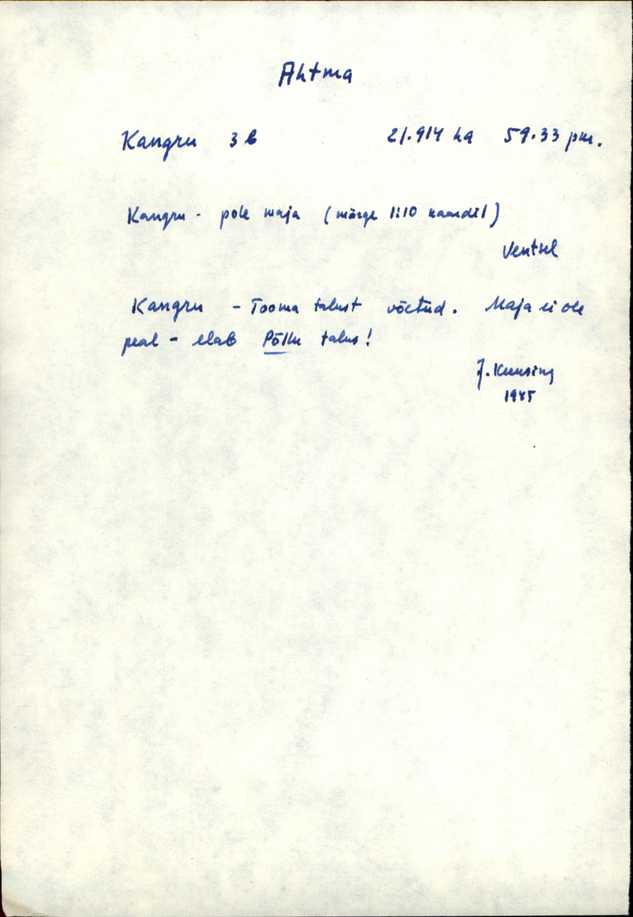 Ahtma
Kangru 3b 21.914 ha 59.33 pm.
Kangru - pole maja (märge 1:10 kaardil)
Ventsel
Kangru - Tooma talust võetud. Maja ei ole
peal - elab Põllu talus!
J. Kuusing
1985